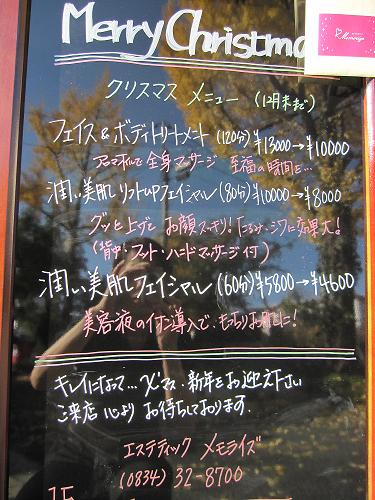 Merry Christma
クリスマス メニュー (12月末まで)
フェイス&ボディトリートメント (120分) ¥13000→¥10000
アロマオイルで全身マッサージ 至福の時間を…
潤い美肌リフトUPフェイシャル (80分) ¥10000→¥8000
グッと上げて お顔スッキリ! たるみ・シワに効果大!
(背中・フット・ハンドマッサージ付)
潤い美肌フェイシャル (60分) ¥5800→¥4600
美容液のイオン導入で、もっちりお肌に!
キレイになって…X'マス、新年をお迎え下さい
ご来店 心より お待ちしております.
エステティック メモライズ
(0834) 32-8700